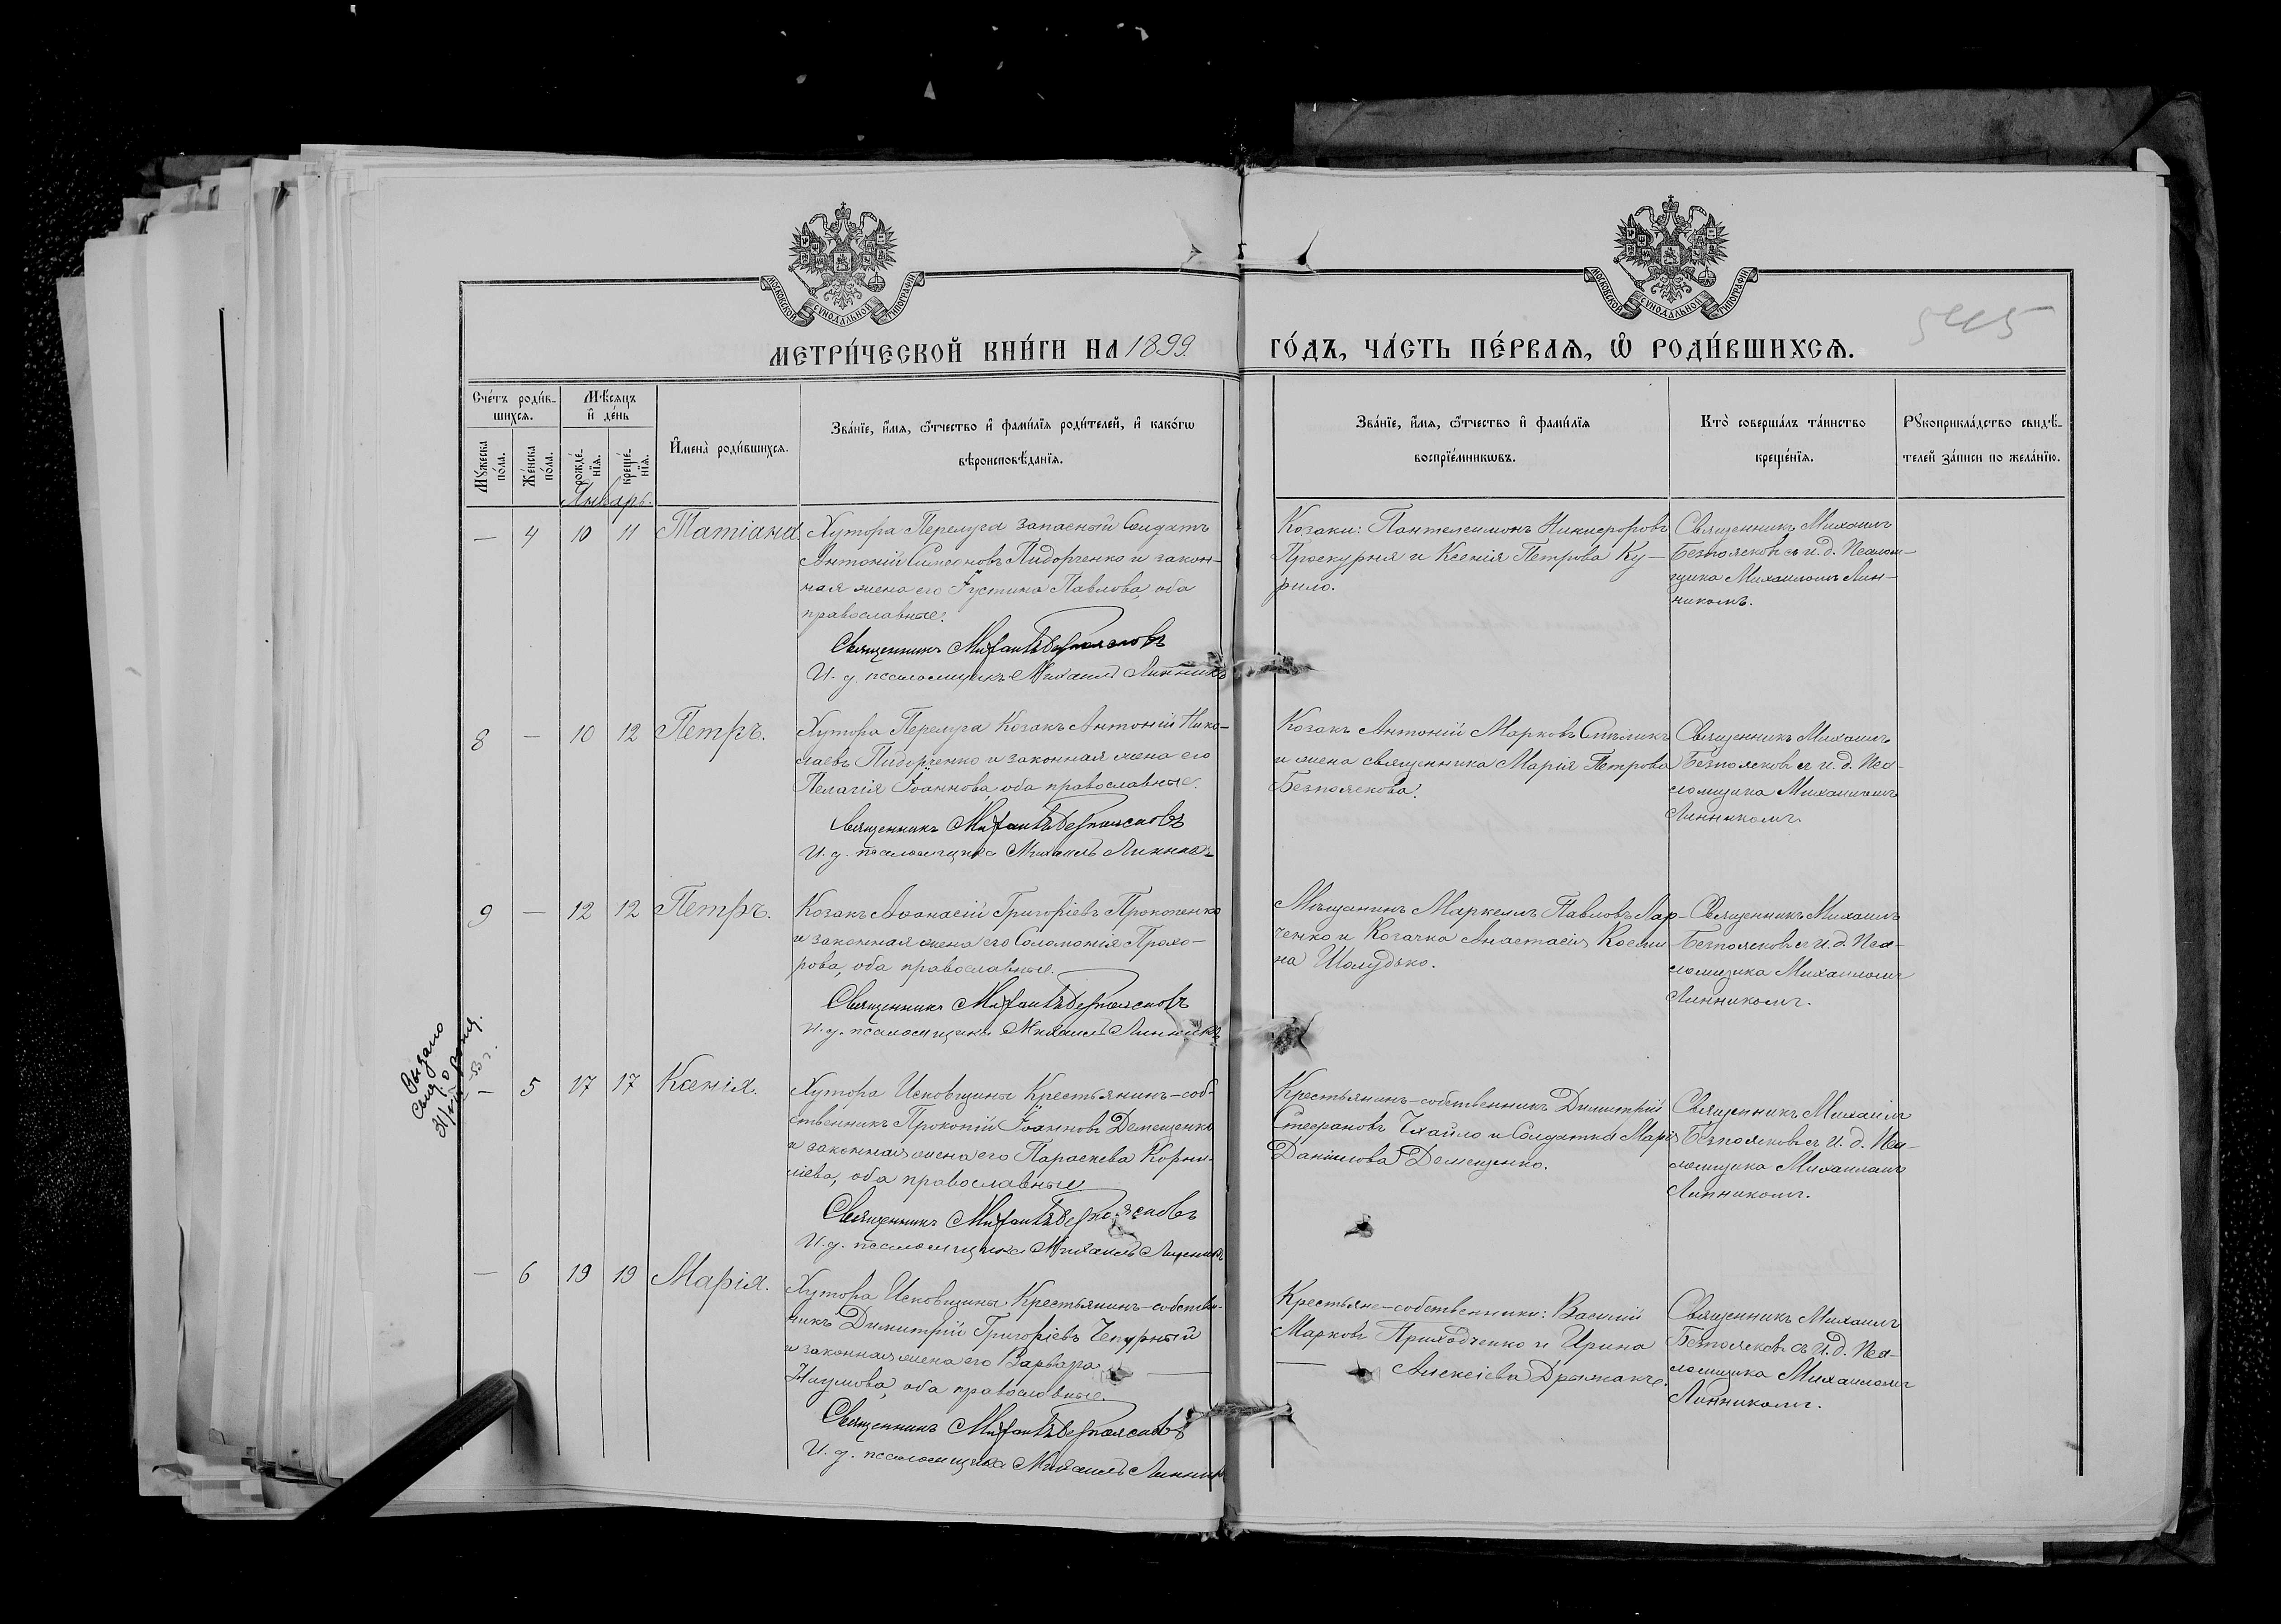 МОСКОВСКОЙ СѴНОДАЛЬНОЙ ТИПОГРАФІИ
МОСКОВСКОЙ СѴНОДАЛЬНОЙ ТИПОГРАФІИ
545
МЕТРИ́ЧЕСКОЙ КНИ́ГИ НА 1899
ГО́ДЪ, ЧА́СТЬ ПЕ́РВАѦ, Ѡ҆ РОДИ́ВШИХСѦ.
Сче́тъ роди́в-
шихсѧ.
Мѣ́сѧцъ
и҆ де́нь
Мꙋ́жеска
по́ла.
Же́нска
по́ла.
рожде́-
нїѧ.
креще́-
нїѧ.
И҆мена̀ роди́вшихсѧ.
Зва́нїе, и҆́мѧ, ѻ҆́тчество и҆ фами́лїѧ роди́телей, и҆ како́гѡ
вѣроисповѣ́данїѧ.
Зва́нїе, и҆́мѧ, ѻ҆́тчество и҆ фами́лїѧ
воспрїе́мникѡвъ.
Кто̀ соверша́лъ та́инство
креще́нїѧ.
Рꙋкоприкла́дство свидѣ́-
телей за́писи по жела́нїю.
Январь.
— 4 10 11 Татіана
Хутора Перелуга запасный Солдатъ
Антоній Симеоновъ Пидорченко и закон-
ная жена его Іустина Павлова, оба
православные.
Священникъ Михаилъ Безпоясковъ
И. д. псаломщика Михаилъ Линникъ
Козаки: Пантелеимонъ Никифоровъ
Проскурня и Ксенія Петрова Ку-
рило.
Священникъ Михаилъ
Безпоясковъ съ и. д. Псалом-
щика Михаиломъ Лин-
никомъ.
8 — 10 12 Петръ.
Хутора Перелуга Козакъ Антоній Нико-
лаевъ Пидорченко и законная жена его
Пелагія Іоаннова, оба православные.
Священникъ Михаилъ Безпоясковъ
И. д. псаломщика Михаилъ Линникъ
Козакъ Антоній Марковъ
и жена священника Марія Петрова
Безпояскова.
Священникъ Михаилъ
Безпоясковъ съ и. д. Пса-
ломщика Михаиломъ
Линникомъ.
9 — 12 12 Петръ.
Козакъ Аѳанасій Григоріевъ Прокопенко
и законная жена его Соломонія Прохо-
рова, оба православные.
Священникъ Михаилъ Безпоясковъ
И. д. псаломщика Михаилъ Линникъ
Мѣщанинъ Маркеллъ Павловъ Лар-
ченко и Козачка Анастасія Косми-
на Шолудько.
Священникъ Михаилъ
Безпоясковъ съ и. д. Пса-
ломщика Михаиломъ
Линникомъ.
Выдано
свид. о рожд.
— 5 17 17 Ксенія.
Хутора Исковщины Крестьянинъ-соб-
ственникъ Прокопій Іоанновъ Демещенко
и законная жена его Параскева Корни-
ліева, оба православные.
Священникъ Михаилъ Безпоясковъ
И. д. псаломщика Михаилъ Линникъ
Крестьянинъ-собственникъ Димитрій
Стефановъ Чхайло и Солдатка Марія
Даніилова Демещенко.
Священникъ Михаилъ
Безпоясковъ съ и. д. Пса-
ломщика Михаиломъ
Линникомъ.
— 6 19 19 Марія.
Хутора Исковщины Крестьянинъ-собствен-
никъ Димитрій Григоріевъ Чепурный
и законная жена его Варвара —
Наумова, оба православные.
Священникъ Михаилъ Безпоясковъ
И. д. псаломщика Михаилъ Линникъ
Крестьяне-собственники: Василій
Марковъ Приходченко и Ирина
— Алексіева Дрыжакъ.
Священникъ Михаилъ
Безпоясковъ съ и. д. Пса-
ломщика Михаиломъ
Линникомъ.